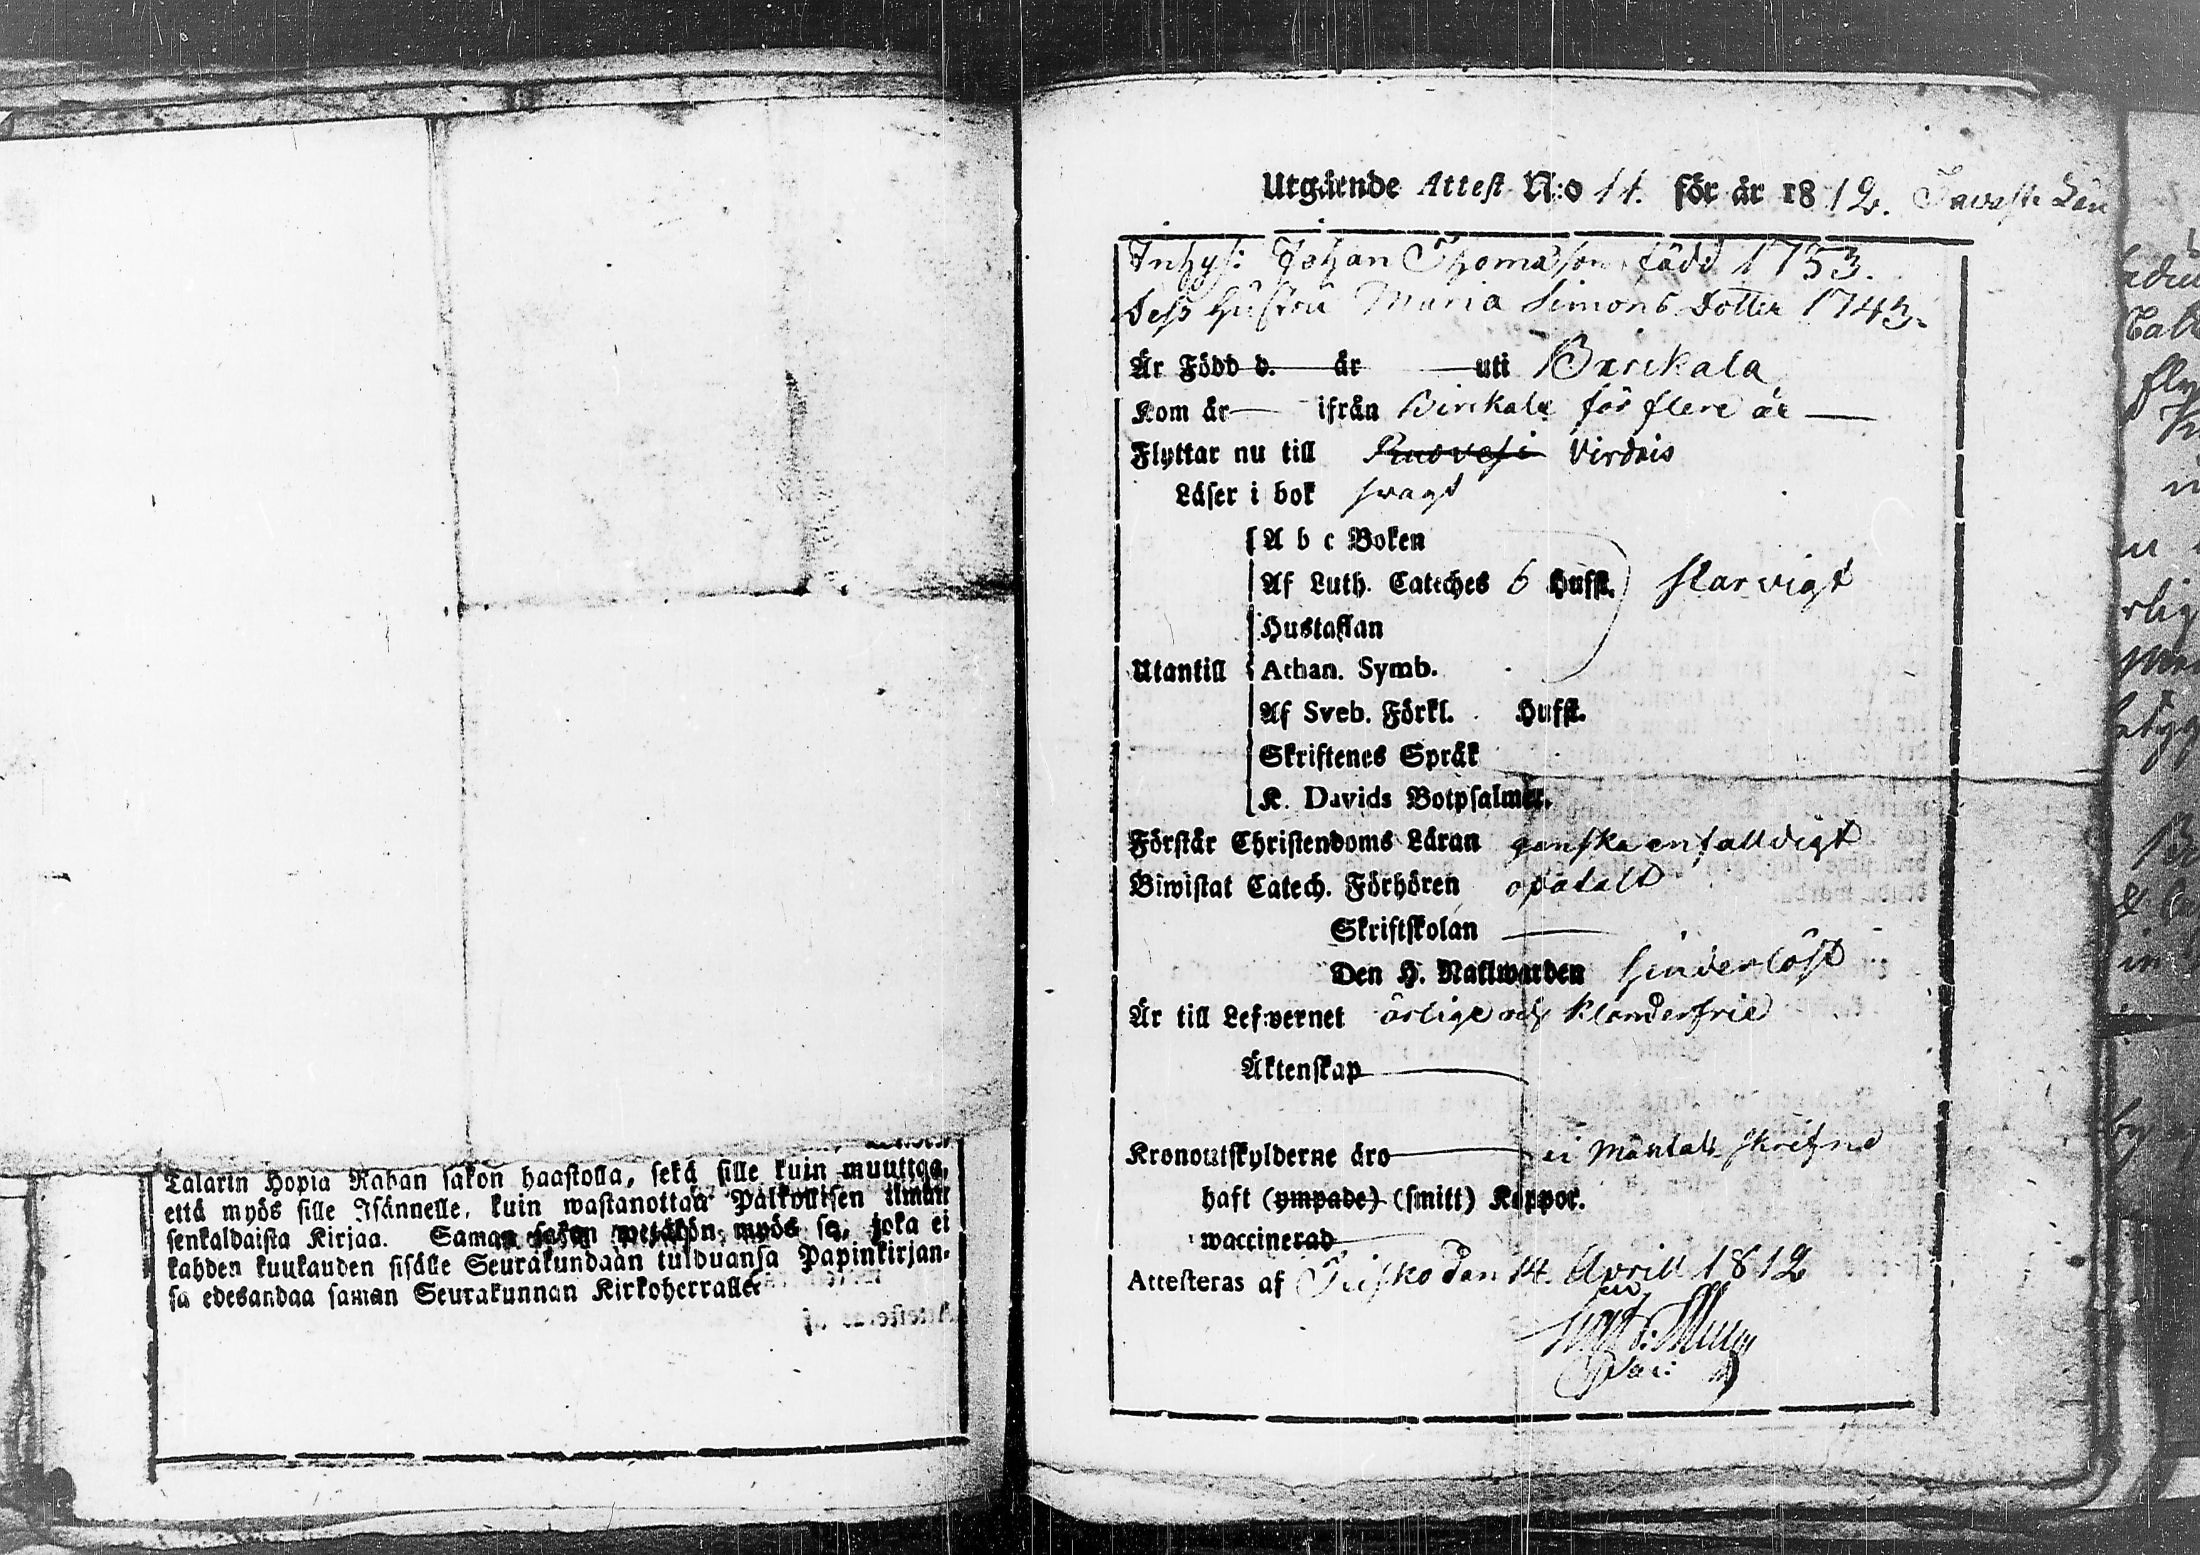 Talarin Hopia Rahan sakon haastolla, sekä sille kuin muuttaa,
että myös sille Isännelle, kuin wastanottaa Palkollisen ilman
senkaldaista Kirjaa. Saman sakon wetäkön myös se, joka ei
kahden kuukauden sisälle Seurakundaan tulduansa Papinkirjan-
sa edesandaa saman Seurakunnan Kirkoherralle.
Utgående Attest N:o 14. för år 1812. Tavaste Län
Inhys: Johan Thomasson född 1753.
Dess Hustru Maria Simons dotter 1743.
Är Född d. år uti Birckala
Kom år ifrån Birckala för flere år
Flyttar nu till Ruovesi Virdois
Läser i bok svagt
A b c Boken
Af Luth. Cateches 6 Hufst. slarvigt
Hustaflan
Utantill Athan. Symb.
Af Sveb. Förkl. Hufst.
Skriftenes Språk
K. Davids Botpsalmer.
Förstår Christendoms Läran ganska enfalldigt
Biwistat Catech. Förhören
Skriftskolan
Den H. Nattwarden hinderlöst
Är till Lefwernet ärlige och klanderfrie
Äktenskap
Kronoutskylderne äro ei Mantals skrifne
haft (ympade) (smitt) Koppor.
waccinerad
Attesteras af den 14. Aprill 1812